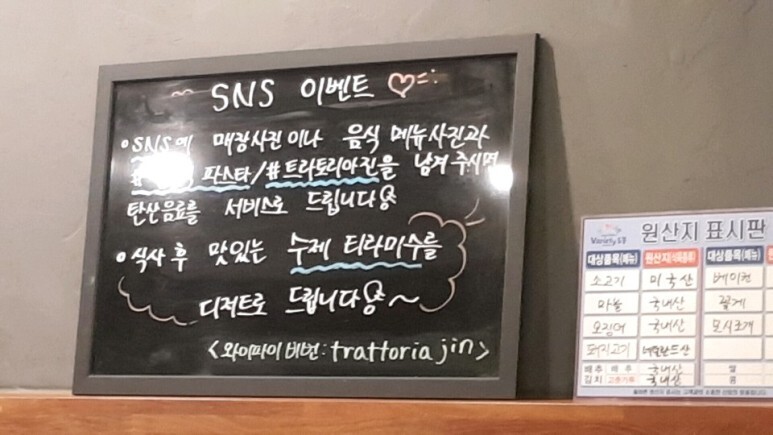 SNS 이벤트
• SNS에 매장사진이나 음식 메뉴사진과
파스타/#트라토리아진을 남겨주시면
탄산음료를 서비스로 드립니다
• 식사 후 맛있는 수제 티라미수를
디저트로 드립니다 ~
<와이파이 비번: trattoria jin>
원산지 표시판
대상품목(메뉴) 대상품목(메뉴)
소고기 미국산 베이컨
마늘 국내산 꽃게
오징어 국내산 모시조개
돼지고기
배추 배추 국내산 쌀
김치 고춧가루 국내산 콩